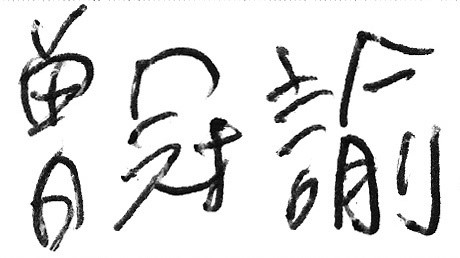 曾冠諭